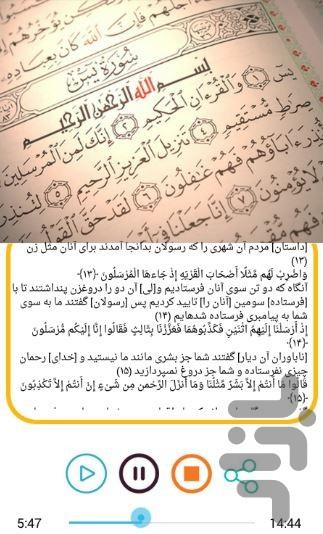 سُورَةُ يسٓ
بِسْمِ اللَّهِ الرَّحْمَٰنِ الرَّحِيمِ
يسٓ ١ وَالْقُرْءَانِ الْحَكِيمِ ٢ إِنَّكَ لَمِنَ الْمُرْسَلِينَ
صِرَٰطٍ مُّسْتَقِيمٍ ٤ تَنزِيلَ الْعَزِيزِ الرَّحِيمِ ٥ لِتُنذِرَ
ءَابَآؤُهُمْ فَهُمْ غَٰفِلُونَ ٦ لَقَدْ حَقَّ الْقَوْلُ
لَا يُؤْمِنُونَ ٧ إِنَّا جَعَلْنَا
[داستان] مردم آن شهری را که رسولان بدانجا آمدند برای آنان مثل زن
(۱۳)
وَاضْرِبْ لَهُم مَّثَلًا أَصْحَابَ الْقَرْيَةِ إِذْ جَاءَهَا الْمُرْسَلُونَ ﴿۱۳﴾
آنگاه که دو تن سوی آنان فرستادیم و[لی] آن دو را دروغزن پنداشتند تا با
[فرستاده] سومین [آنان را] تایید کردیم پس [رسولان] گفتند ما به سوی
شما به پیامبری فرستاده شده‏ایم (۱۴)
إِذْ أَرْسَلْنَا إِلَيْهِمُ اثْنَيْنِ فَكَذَّبُوهُمَا فَعَزَّزْنَا بِثَالِثٍ فَقَالُوا إِنَّا إِلَيْكُم مُّرْسَلُونَ
﴿۱۴﴾
[ناباوران آن دیار] گفتند شما جز بشری مانند ما نیستید و [خدای] رحمان
چیزی نفرستاده و شما جز دروغ نمی‏پردازید (۱۵)
قَالُوا مَا أَنتُمْ إِلَّا بَشَرٌ مِّثْلُنَا وَمَا أَنزَلَ الرَّحْمن مِن شَيْءٍ إِنْ أَنتُمْ إِلَّا تَكْذِبُونَ
﴿۱۵﴾
بازار
5:47
14:44